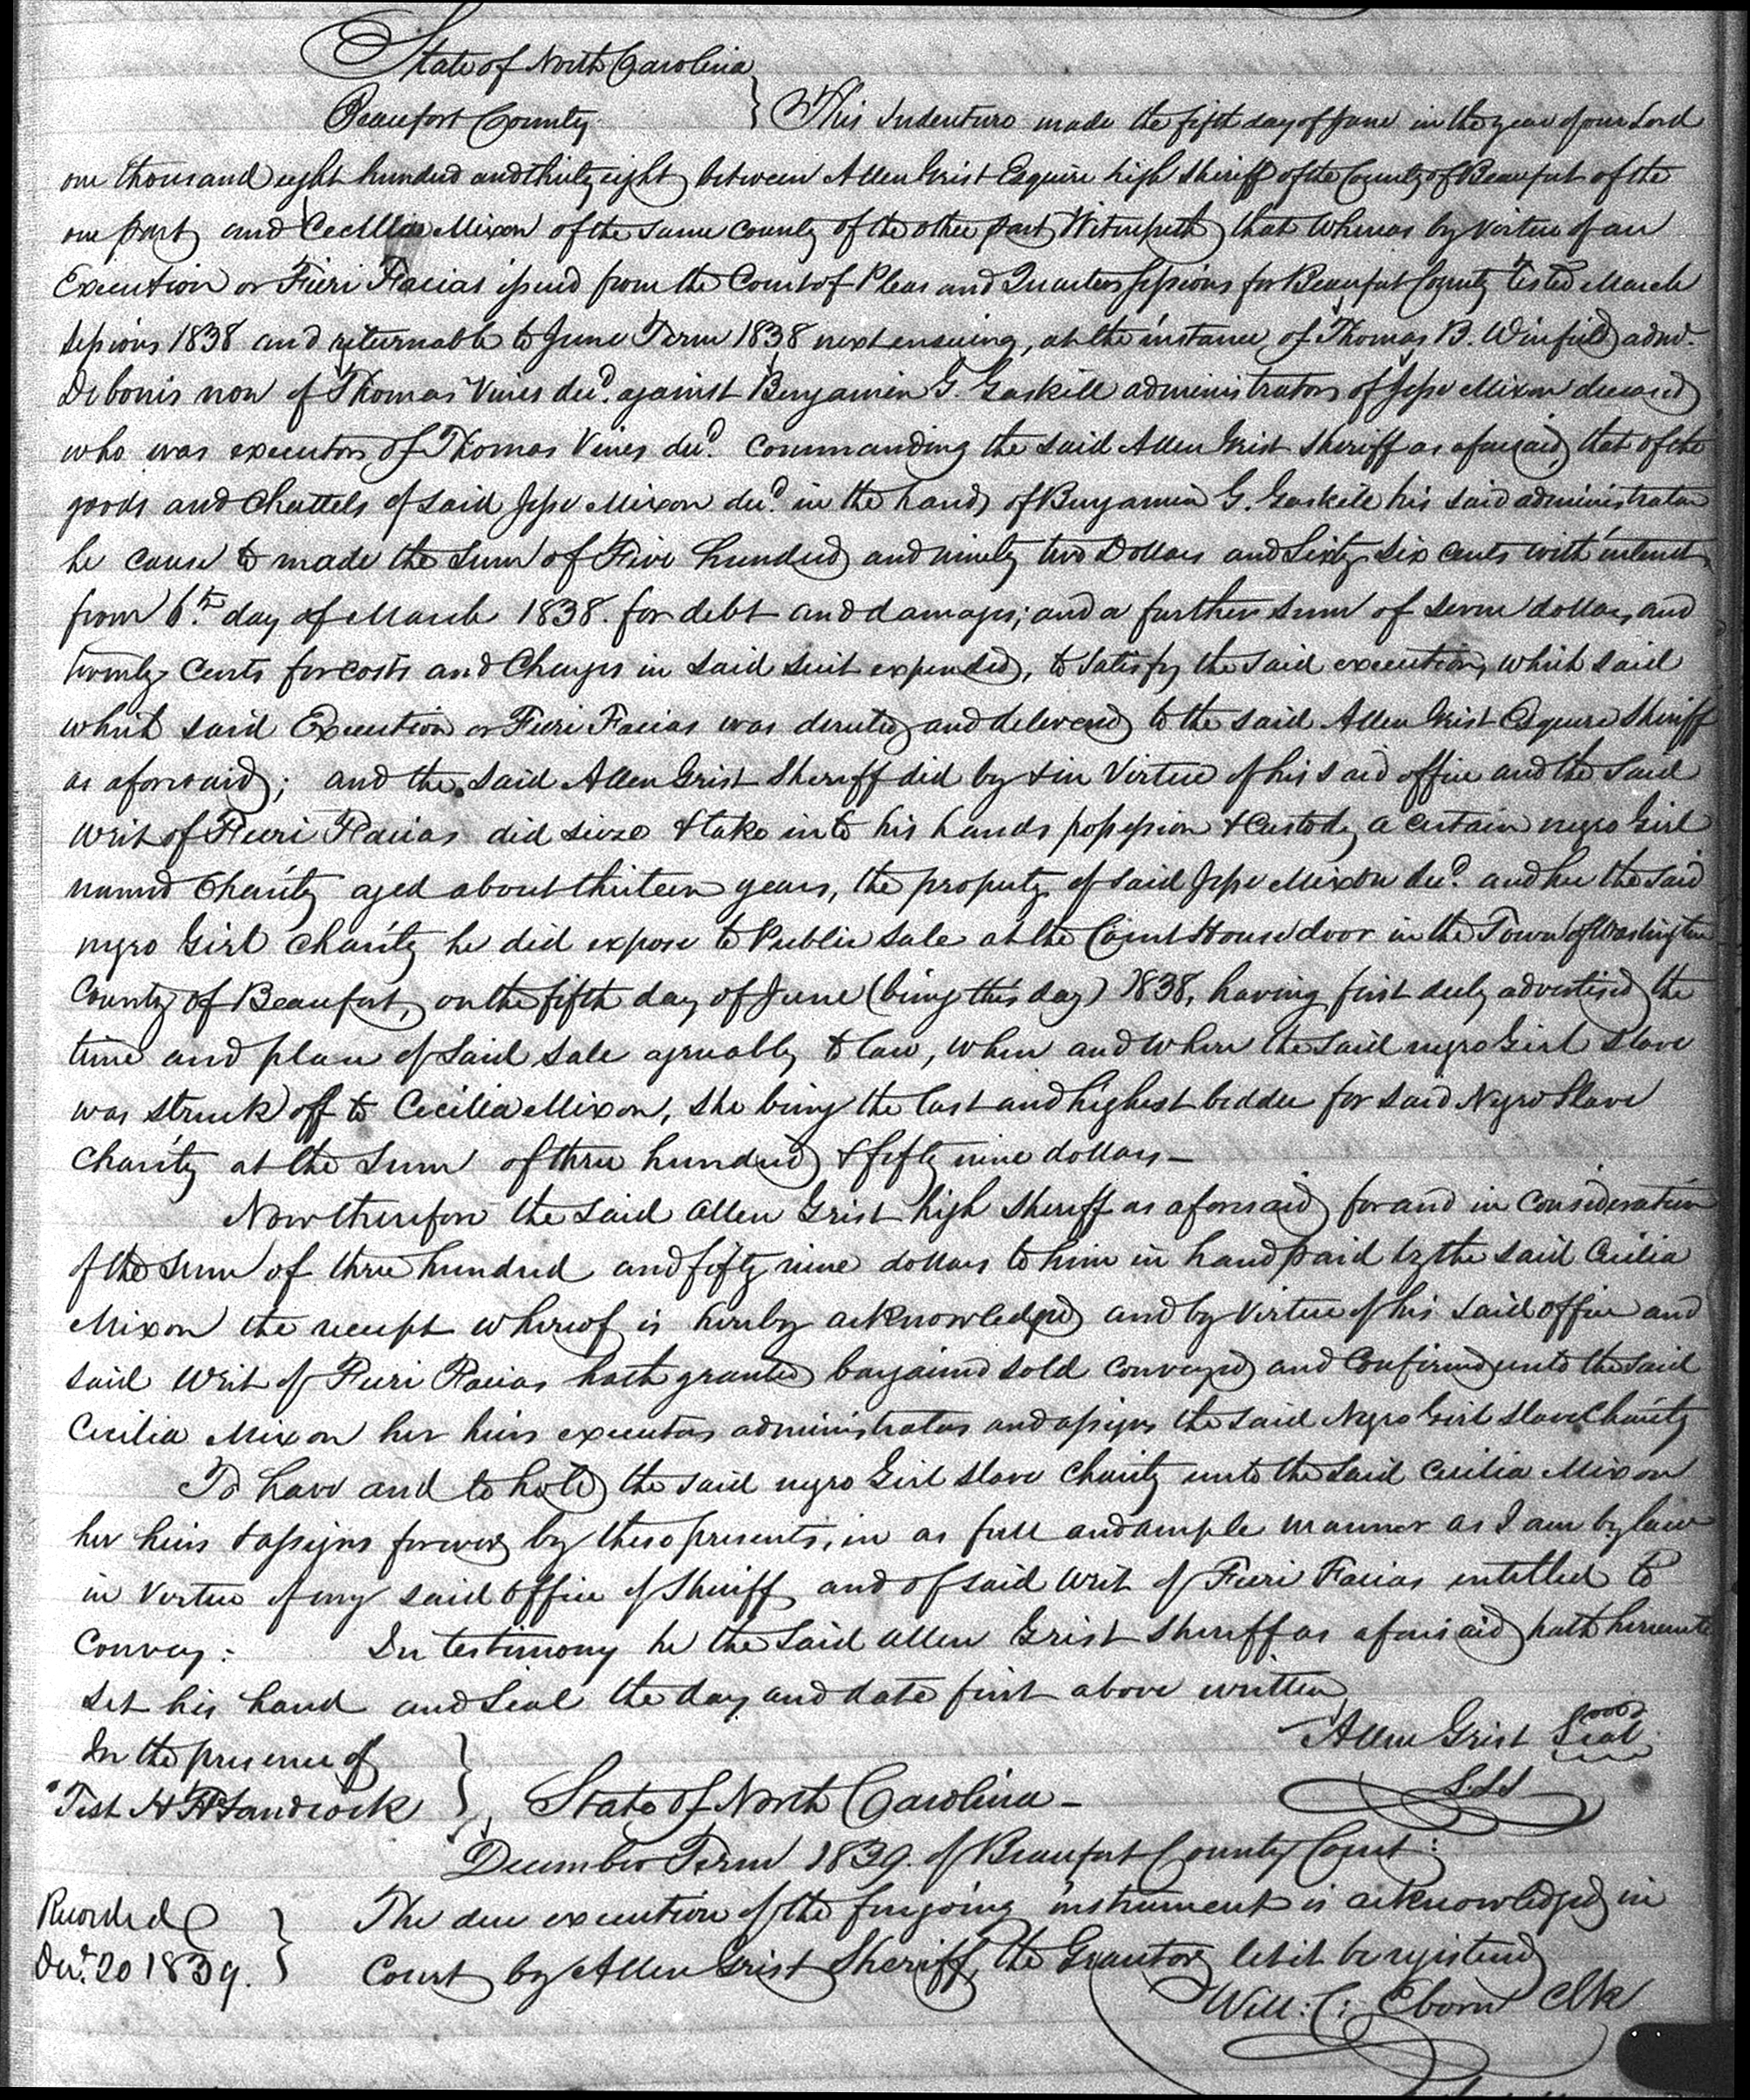 State of North Carolina
Beaufort County } This Indenture made the fifth day of June in the year of our Lord
one thousand eight hundred and thirty eight between Allen Grist Esquire high Sheriff of the County of Beaufort of the
one part and Cecillia Mixon of the same county of the other part Witnesseth that Whereas by virtue of an
Execution or Fieri Facias issued from the Court of Pleas and Quarter Sessions for Beaufort County tested March
Sessions 1838 and returnable to June Term 1838 next ensuing, at the instance of Thomas B. Winfield admr.
De bonis non of Thomas Vines decd. against Benjamin G. Gaskill administrator of Jesse Mixon deceased
who was executor of Thomas Vines decd. Commanding the said Allen Grist Sheriff as aforesaid, that of the
goods and Chattels of said Jesse Mixon decd. in the hands of Benjamin G. Gaskill his said administrator
he cause to made the sum of Five hundred and ninety two Dollars and Sixty Six cents with interest
from 6th. day of March 1838. for debt and damages; and a further sum of seven dollars and
twenty Cents for costs and Charges in said suit expended, to satisfy the said execution, which said
which said Execution or Fieri Facias was directed and delivered to the said Allen Grist Esquire Sheriff
as aforesaid; and the said Allen Grist Sheriff did by & in Virtue of his said office and the said
writ of Fieri Facias did sieze & take into his hands possession & Custody a certain negro Girl
named Charity aged about thirteen years, the property of said Jesse Mixon decd. and her the said
negro Girl Charity he did expose to Public sale at the Court House door in the Town of Washington
County of Beaufort, on the fifth day of June (being this day) 1838, having first duly advertised the
time and place of said sale agreeably to law, when and where the said negro Girl slave
was struck off to Cecilia Mixon, she being the last and highest bidder for said Negro Slave
Charity at the sum of three hundred & fifty nine dollars —
Now therefore the said Allen Grist high Sheriff as aforesaid for and in Consideration
of the sum of three hundred and fifty nine dollars to him in hand paid by the said Cecilia
Mixon the receipt whereof is hereby acknowledged and by Virtue of his said office and
said Writ of Fieri Facias hath granted bargained sold conveyed and confirmed unto the said
Cecilia Mixon her heirs executors administrators and assigns the said Negro Girl Slave Charity
To have and to hold the said negro Girl slave Charity unto the said Cecilia Mixon
her heirs & assigns forever by these presents, in as full and ample manner as I am by law
in Virtue of my said office of Sheriff and of said writ of Fieri Facias intitled to
Convey: In testimony he the said Allen Grist Sheriff as aforesaid hath hereunto
set his hand and Seal the day and date first above written
In the presence of } Allen Grist Seal
Test H H Sandcock
State of North Carolina —
December Term 1839. of Beaufort County Court:
The due execution of the foregoing instrument is acknowledged in
Court by Allen Grist Sheriff, the Grantor let it be registered
Recorded }
Decr. 20 1839.
Will: C: Eborn Clk